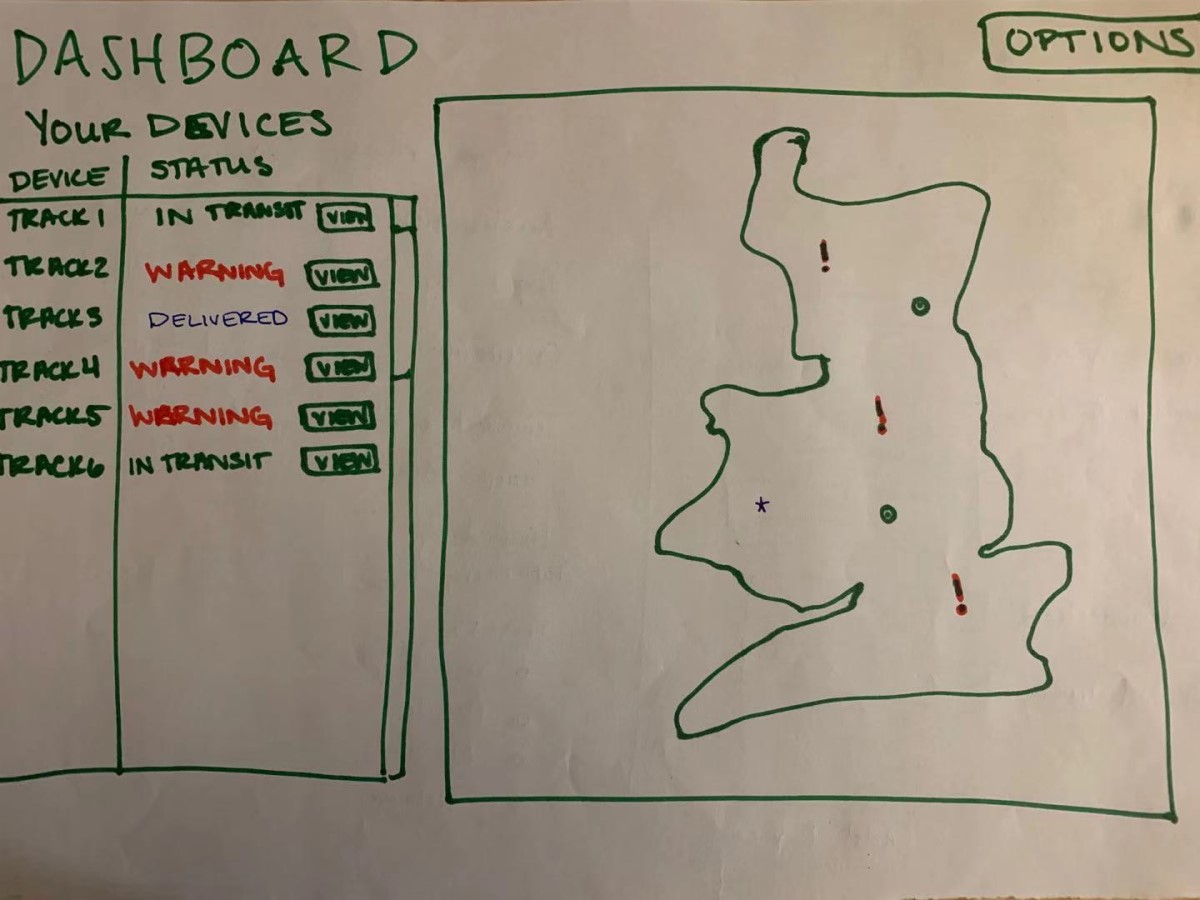 DASHBOARD
OPTIONS
YOUR DEVICES
DEVICE STATUS
TRACK1 IN TRANSIT VIEW
TRACK2 WARNING VIEW
TRACK3 DELIVERED VIEW
TRACK4 WARNING VIEW
TRACK5 WARNING VIEW
TRACK6 IN TRANSIT VIEW
!
!
*
!